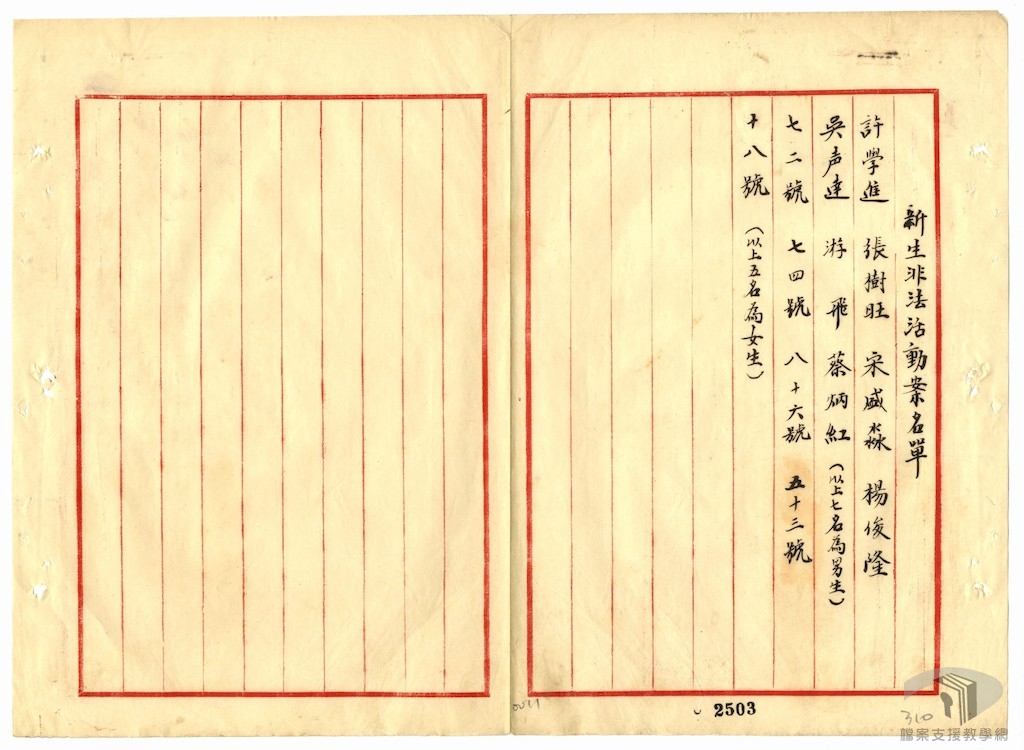 新生非法活動案名單
許學進 張樹旺 宋盛淼 楊俊隆
吳声達 游飛 蔡炳紅（以上七名為男生）
七二號 七四號 八十六號 五十三號
十八號（以上五名為女生）
2503
310
檔案支援教學網